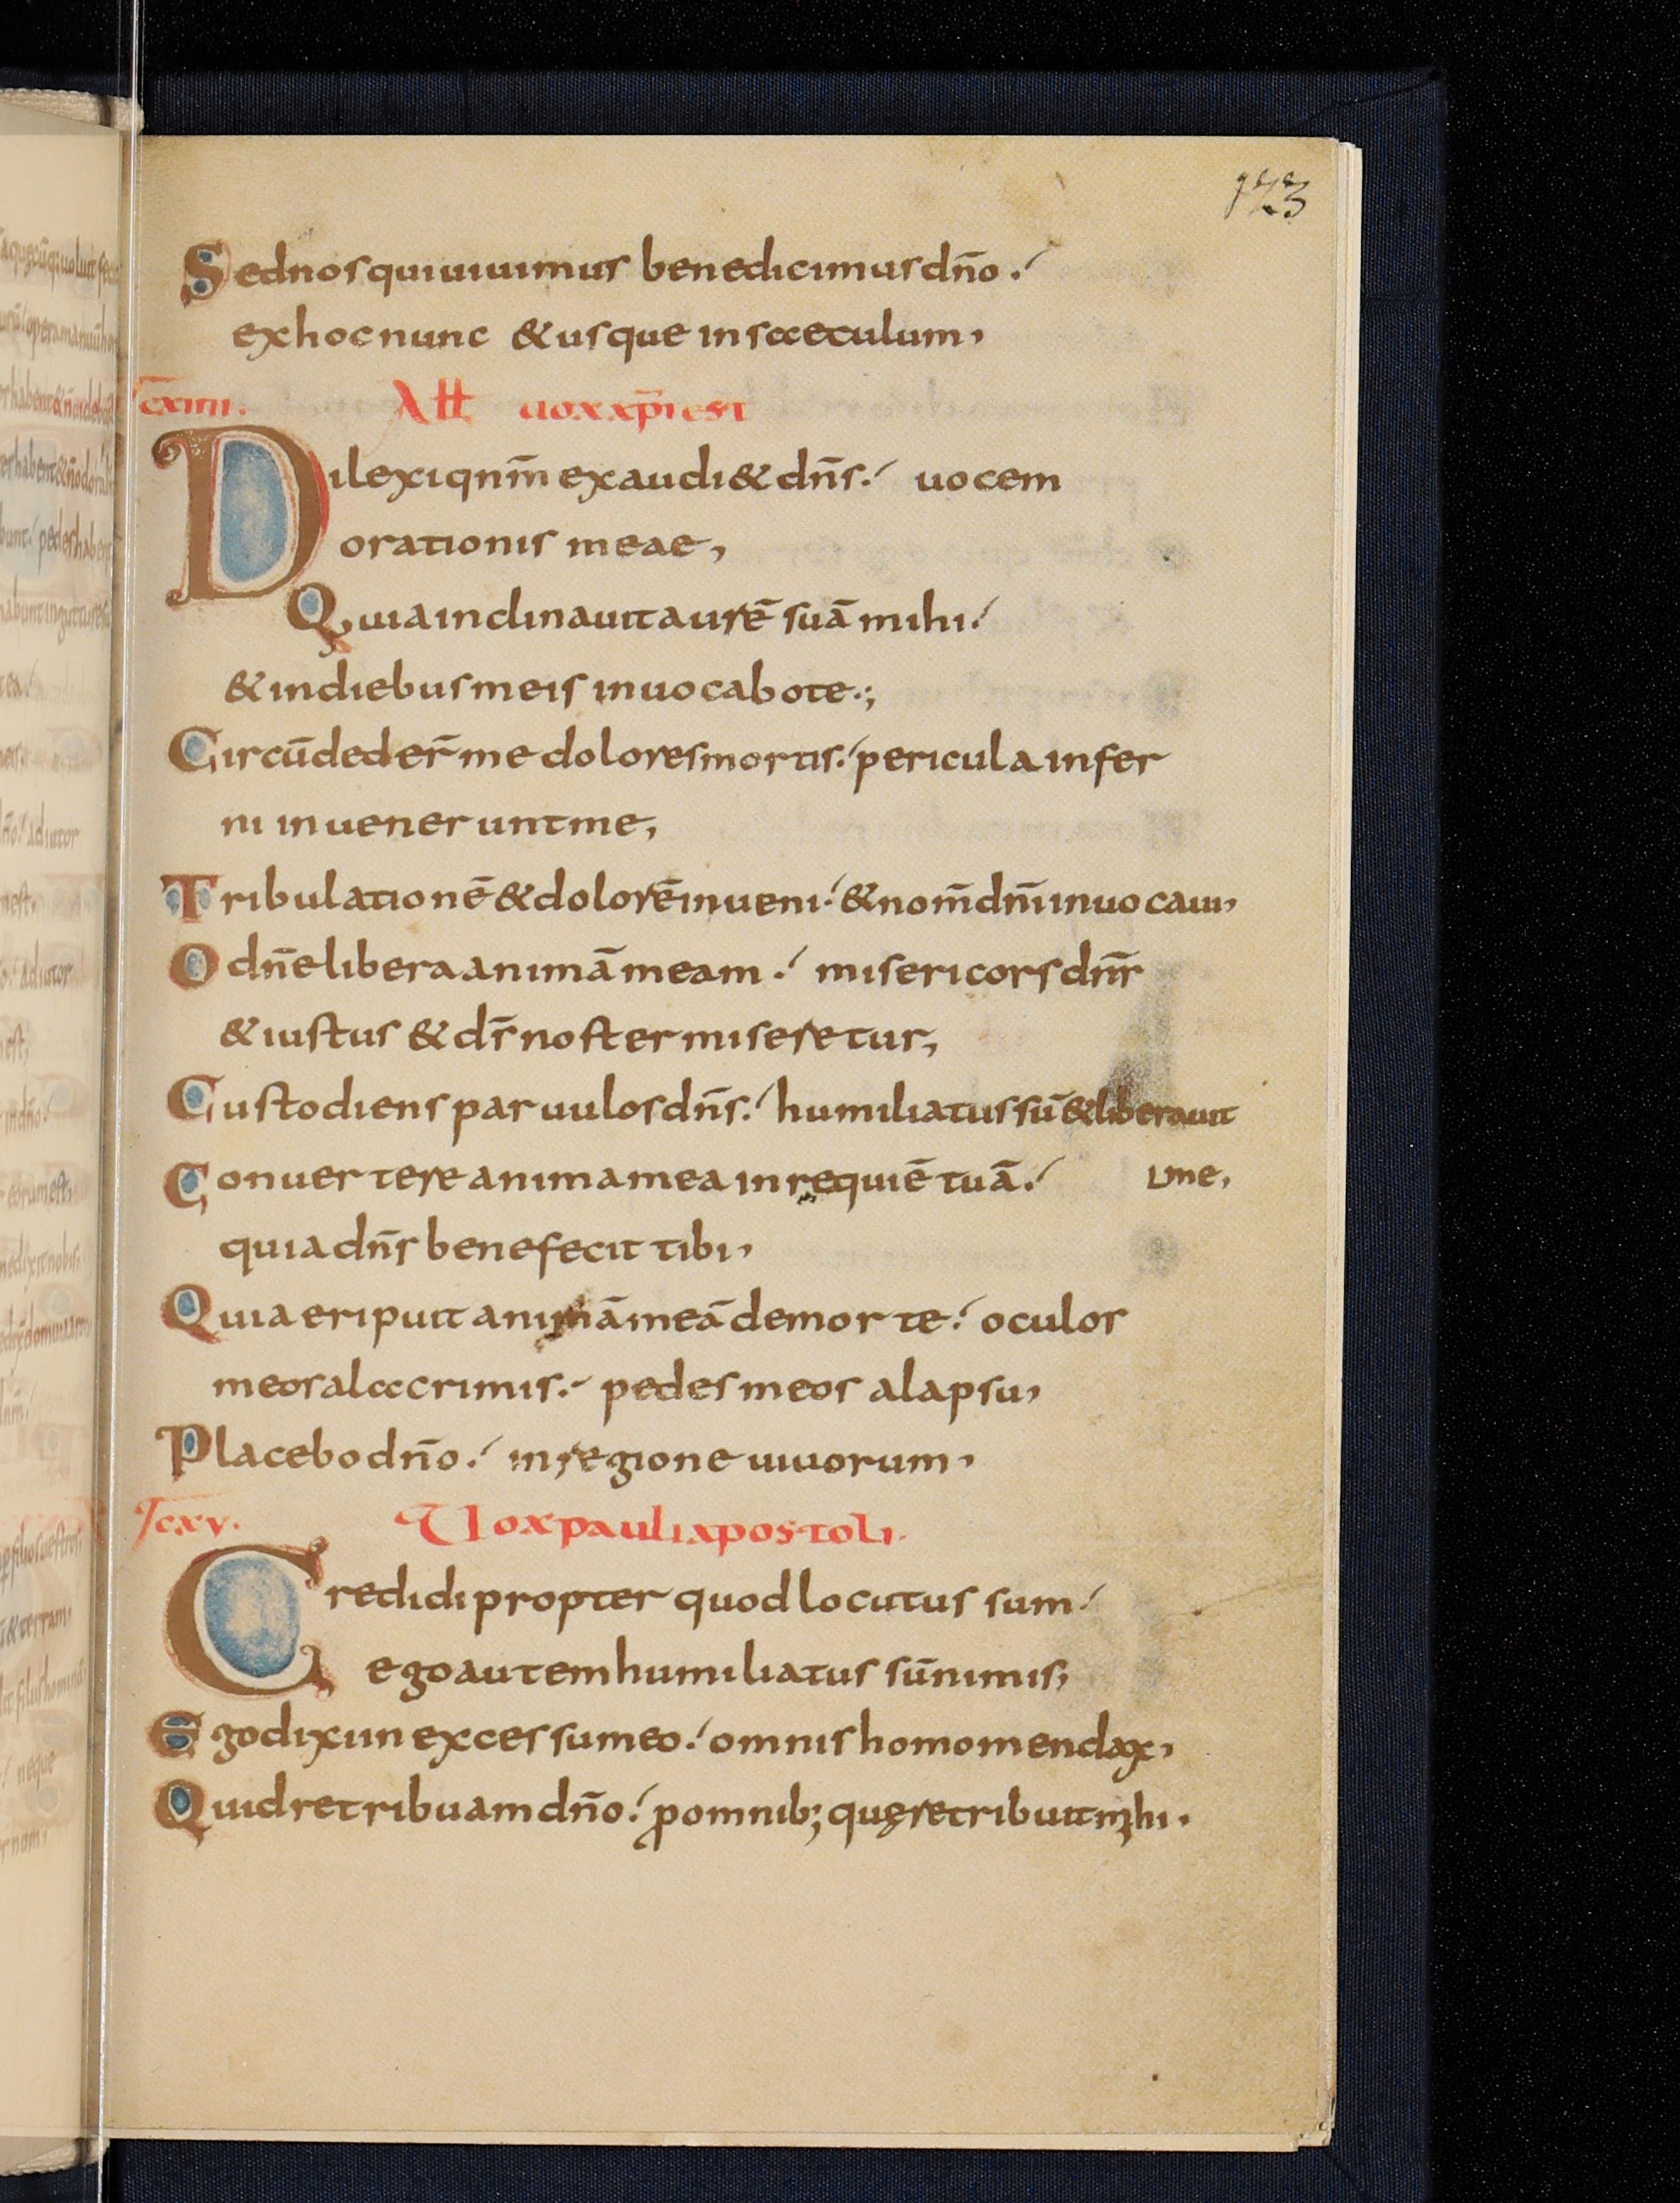 123
Sed nos qui uiuimus benedicimus dn̄o.
ex hoc nunc & usque in saeculum,
cxiiii. All uox xp̄i est
Dilexi qnm̄ exaudi& dn̄s. uocem
orationis meae,
Quia inclinauit aurē suā mihi.
& in diebus meis inuocabo te.;
Circūdeder̄ me dolores mortis. pericula infer
ni inuenerunt me,
Tribulationē & dolorē inueni. & nom̄ dn̄i inuocaui,
O dn̄e libera animā meam. misericors dn̄s
& iustus & ds̄ noster miseretur,
Custodiens paruulos dn̄s. humiliatus sū & liberauit
Conuertere anima mea in requiē tuā. me,
quia dn̄s benefecit tibi,
Quia eripuit animā meā de morte. oculos
meos a lacrimis. pedes meos a lapsu,
Placebo dn̄o. in regione uiuorum,
cxv. Uox pauli apostoli.
Credidi propter quod locutus sum.
ego autem humiliatus sū nimis;
Ego dixi in excessu meo. omnis homo mendax,
Quid retribuam dn̄o. ꝓ omnib; quę retribuit mihi.